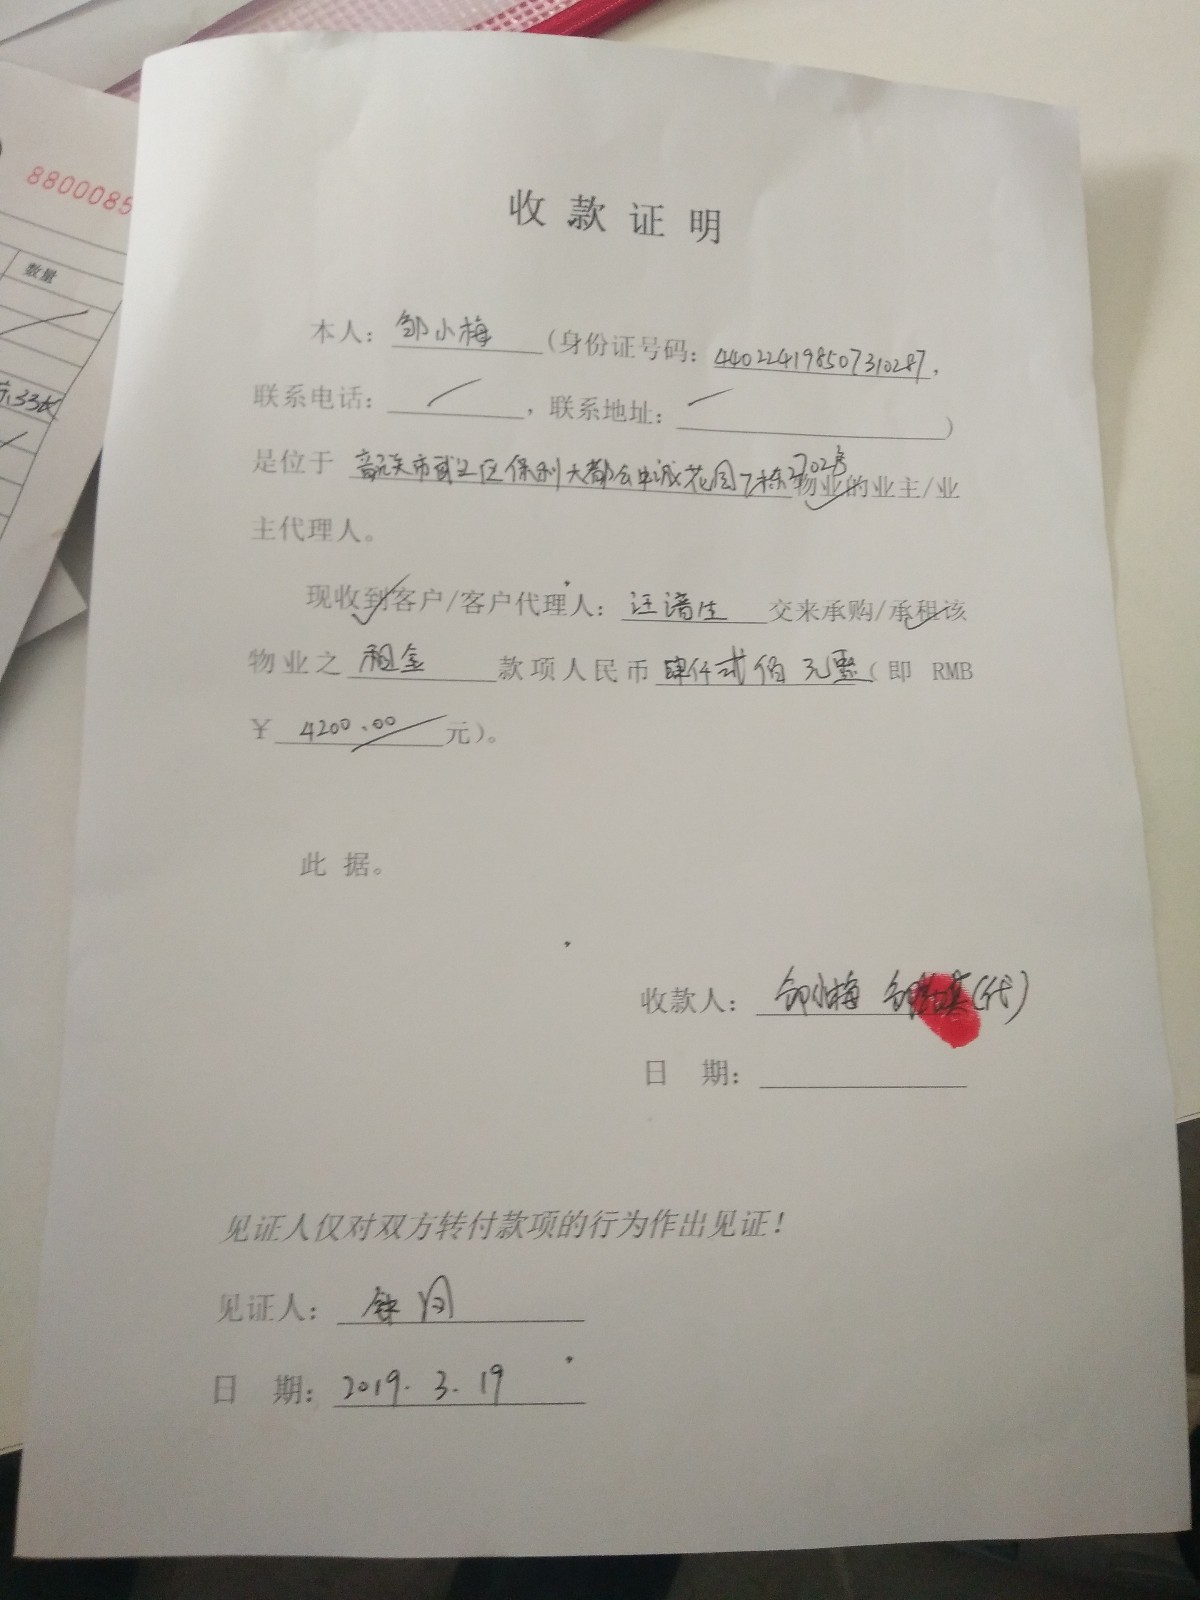 8800085
数量
收款证明
本人：邹小梅（身份证号码：440224198507310287，
联系电话：／，联系地址：／）
是位于 韶关市武江区保利大都会中诚花园7栋2702房物业的业主/业
主代理人。
现收到客户/客户代理人：汪清生 交来承购/承租该
物业之 租金 款项人民币 肆仟贰佰元整（即 RMB
￥4200.00元）。
此 据。
收款人：邹小梅 邹（代）
日 期：
见证人仅对双方转付款项的行为作出见证！
见证人：
日 期：2019.3.19